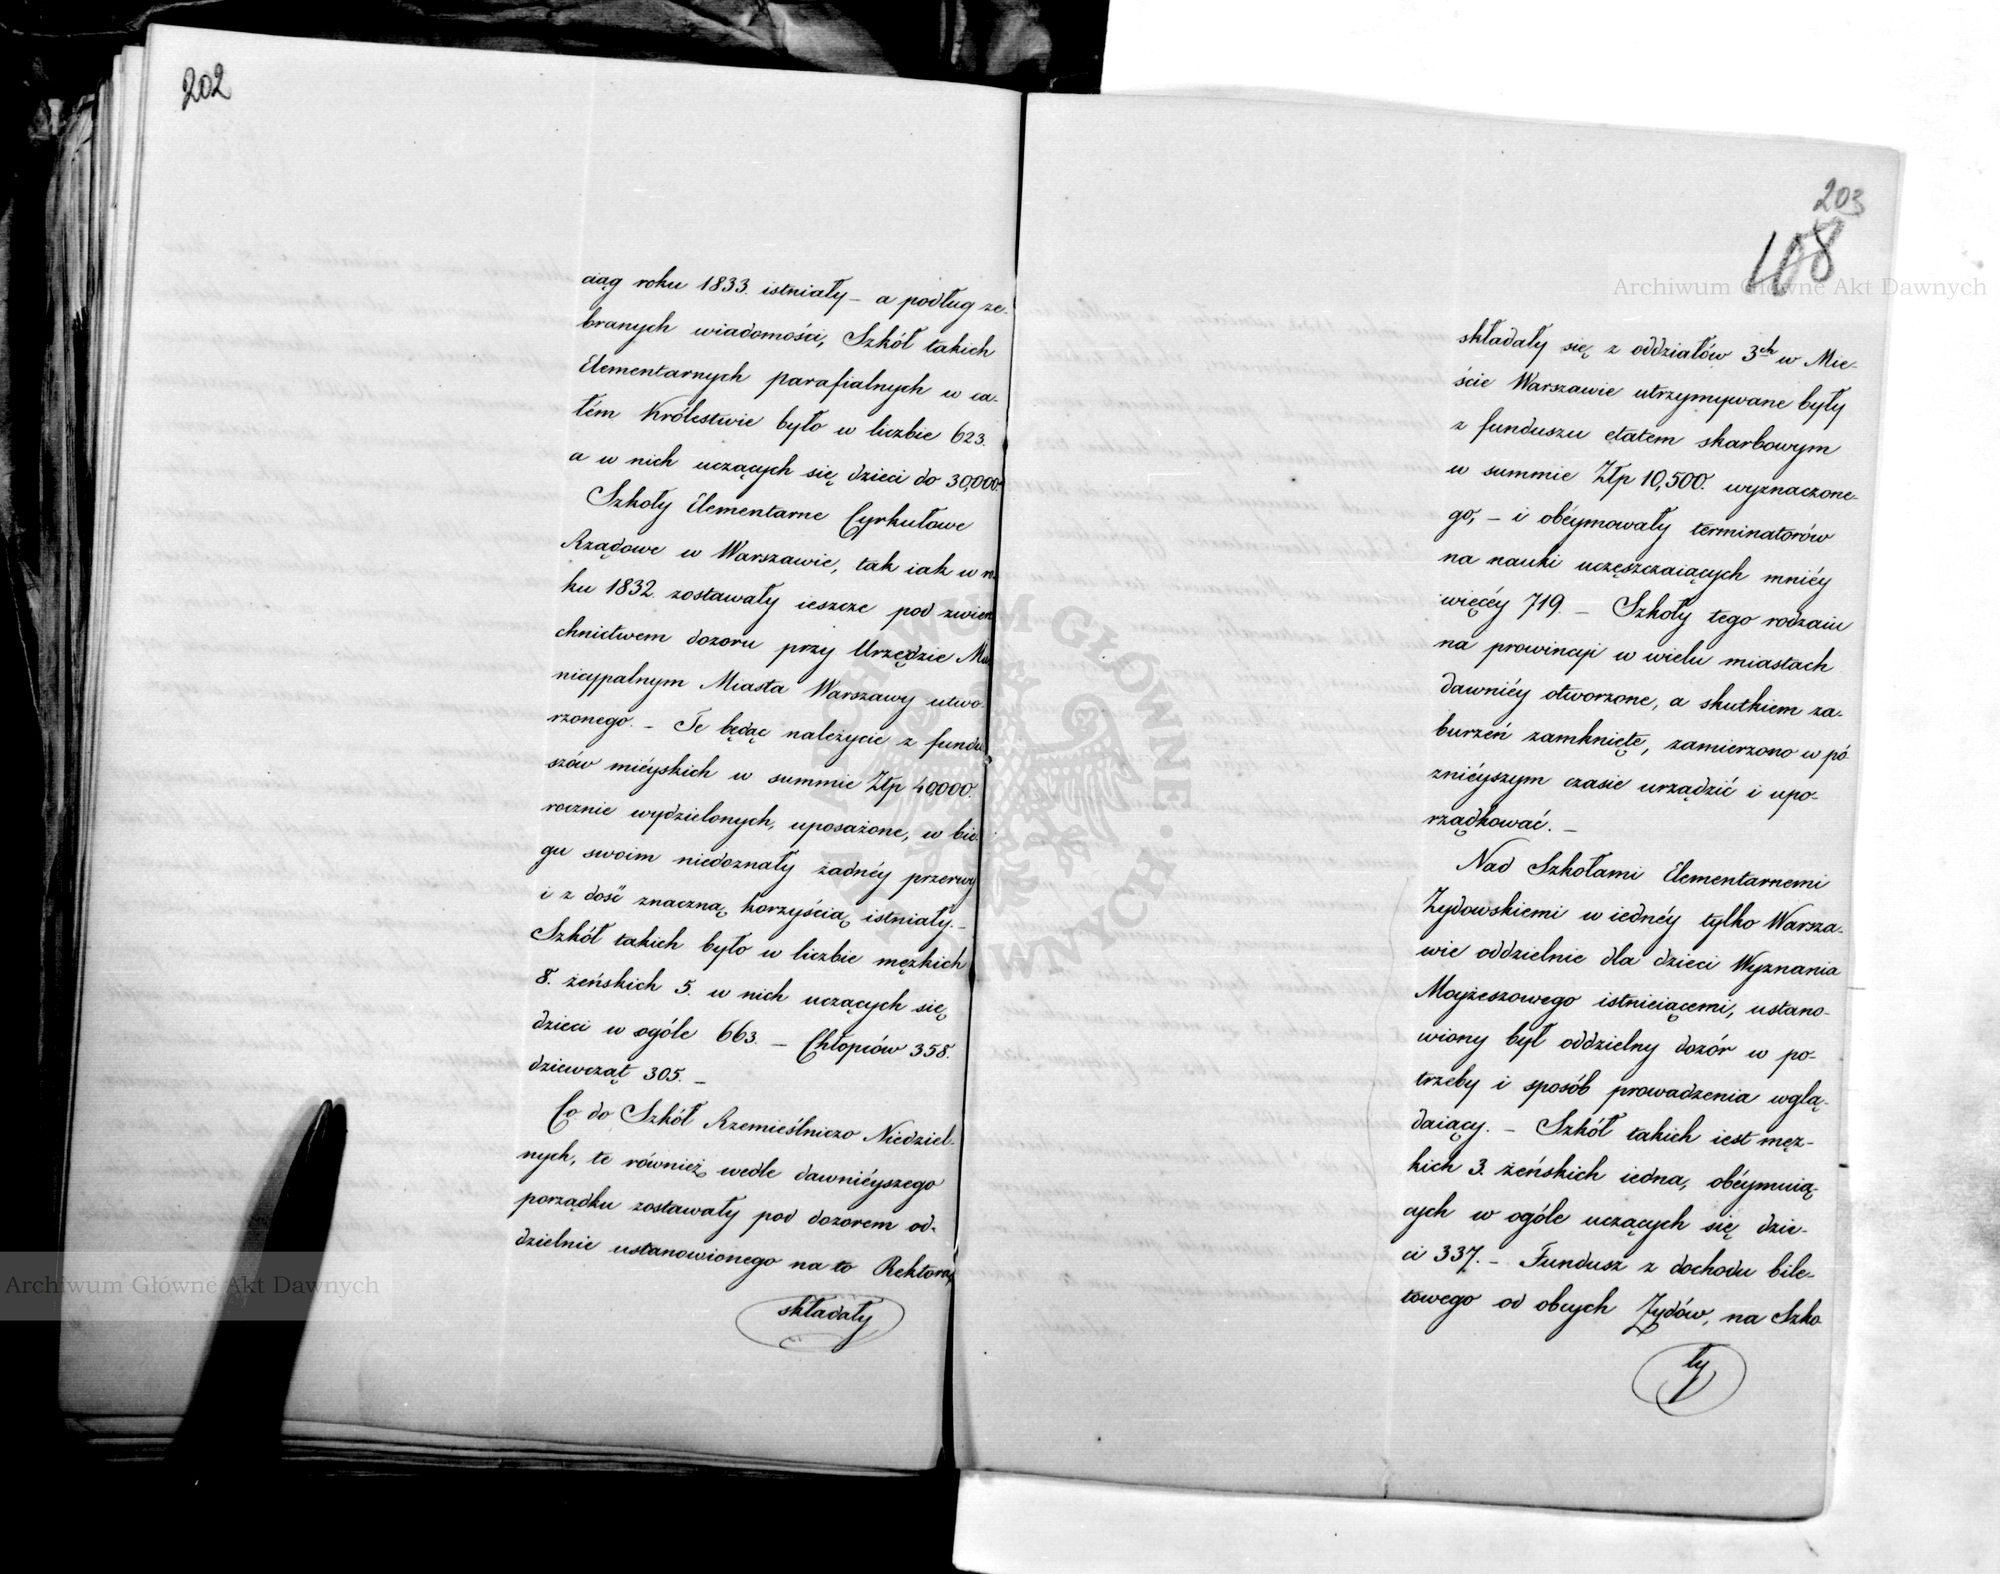 202
ciąg roku 1833. istniały – a podług ze-
branych wiadomości, Szkół takich
Elementarnych parafialnych w ca-
łém Królestwie było w liczbie 623.
a w nich uczących się dzieci do 30,000.
Szkoły Elementarne Cyrkułowe
Rządowe w Warszawie, tak iak w ro-
ku 1832. zostawały ieszcze pod zwierz
chnictwem dozoru przy Urzędzie Mu
nicypalnym Miasta Warszawy utwo-
rzonego. – Te będąc należycie z fundu
szów mieyskich w summie Złp 40000.
rocznie wydzielonych, uposażone, w bie-
gu swoim niedoznały żadnéy przerwy
i z dość znaczną korzyścią istniały. –
Szkół takich było w liczbie męzkich
8. żeńskich 5. w nich uczących się
dzieci w ogóle 663. – Chłopców 358.
dziewcząt 305. –
Co do Szkół Rzemieślniczo Niedziel-
nych, te również wedle dawniéyszego
porządku zostawały pod dozorem od-
dzielnie ustanowionego na to Rektora,
składały
203
108
składały się z oddziałów 3ch w Mie-
ście Warszawie utrzymywane były
z funduszu etatem skarbowym
w summie Złp 10,500. wyznaczone-
go, – i obéymowały terminatorów
na nauki uczęszczaiących mniéy
więcéy 719. – Szkoły tego rodzaiu
na prowincyi w wielu miastach
dawniéy otworzone, a skutkiem za-
burzeń zamknięte, zamierzono w pó-
zniéyszym czasie urządzić i upo-
rządkować. –
Nad Szkołami Elementarnemi
Żydowskiemi w iednéy tylko Warsza-
wie oddzielnie dla dzieci Wyznania
Moyżeszowego istnieiącemi, ustano-
wiony był oddzielny dozór w po-
trzeby i sposób prowadzenia wglą-
daiący. – Szkół takich iest męz-
kich 3. żeńskich iedna, obéymuią-
cych w ogóle uczących się dzie-
ci 337. – Fundusz z dochodu bile-
towego od obcych Żydów, na Szko
ły
Archiwum Główne Akt Dawnych
Archiwum Główne Akt Dawnych
ARCHIWUM GŁÓWNE AKT DAWNYCH